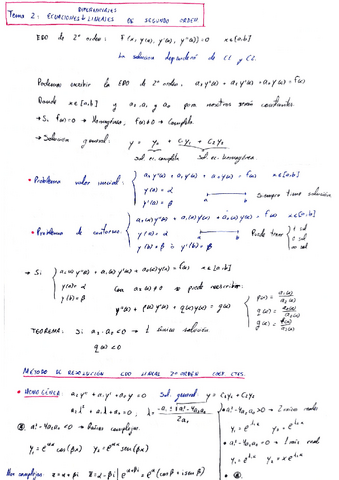 Tema 2: ECUACIONES DIFERENCIALES LINEALES DE SEGUNDO ORDEN
EDO de 2º orden: F(x, y(x), y'(x), y''(x)) = 0 x∈[a,b]
La solución dependerá de C1 y C2.
Podemos escribir la EDO de 2º orden, a₂y'' + a₁y' + a₀y = f(x)
Donde x∈[a,b] y a₂, a₁ y a₀ para nosotros serán constantes.
→ Si f(x)=0 → Homogénea, f(x)≠0 → Completa
→ Solución general: y = y₀ + C₁y₁ + C₂y₂
sol. ec. completa sol. ec. homogénea.
• Problema valor inicial: { a₂y'' + a₁y' + a₀y = f(x) x∈[a,b]
y(a) = α
y'(a) = β
a b Siempre tiene solución
• Problema de contorno: { a₂(x)y'' + a₁(x)y' + a₀(x)y = f(x) x∈[a,b]
y(a) = α
y(b) = β ó y'(b) = β
a b Puede tener { 1 sol
0 sol
∞ sol
→ Si { a₂(x)y'' + a₁(x)y' + a₀(x)y = f(x) x∈[a,b]
y(a) = α
y(b) = β
Con a₂(x) ≠ 0 → puede reescribirse:
y'' + p(x)y' + q(x)y = g(x)
{ p(x) = a₁(x)/a₂(x)
q(x) = a₀(x)/a₂(x)
g(x) = f(x)/a₂(x)
TEOREMA: Si a₂·a₀ < 0 → ∃ única solución
q(x) < 0
MÉTODO DE RESOLUCIÓN EDO LINEAL 2º ORDEN COEF CTES.
• HOMOGÉNEA: a₂y'' + a₁y' + a₀y = 0 Sol. general: y = C₁y₁ + C₂y₂
a₂λ² + a₁λ + a₀ = 0; λ = (-a₁ ± √(a₁² - 4a₂a₀))/2a₂
• a₁² - 4a₂a₀ > 0 → 2 raíces reales
y₁ = e^(λ₁x) y₂ = e^(λ₂x)
⊛ a₁² - 4a₂a₀ < 0 → Raíces complejas.
• a₁² - 4a₂a₀ = 0 → 1 raíz real
y₁ = e^(αx) cos(βx) y₂ = e^(αx) sen(βx)
y₁ = e^(λx) y₂ = x e^(λx)
Nos complejos: z = α + βi z̄ = α - βi | e^(α+βi) = e^α (cos β + i sen β)
• ⊛